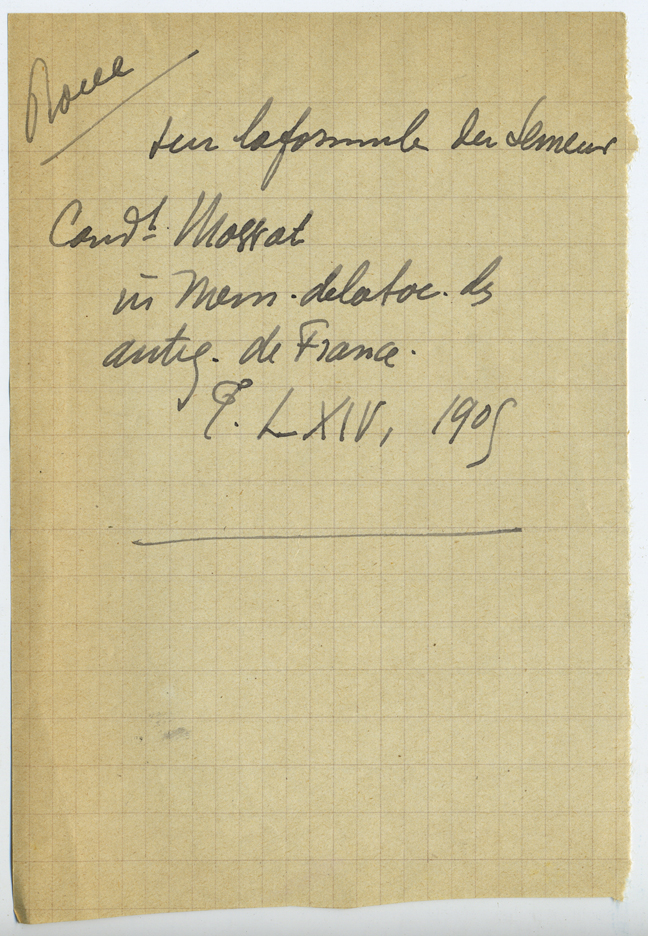 Roue
Sur la formule du Semeur
Comdt Mowat
in Mem. de la Soc. des
antiq. de France.
T. LXIV, 1905